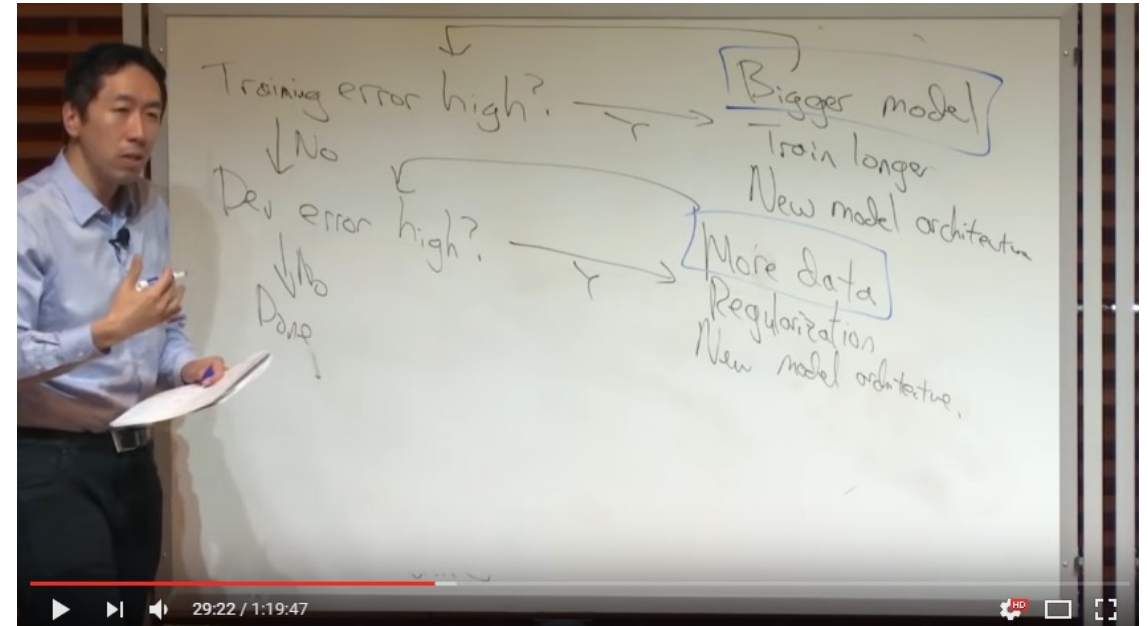 Training error high?
Y
Bigger model
Train longer
New model architecture
No
Dev error high?
Y
More data
Regularization
New model architecture.
No
Done
29:22 / 1:19:47
HD